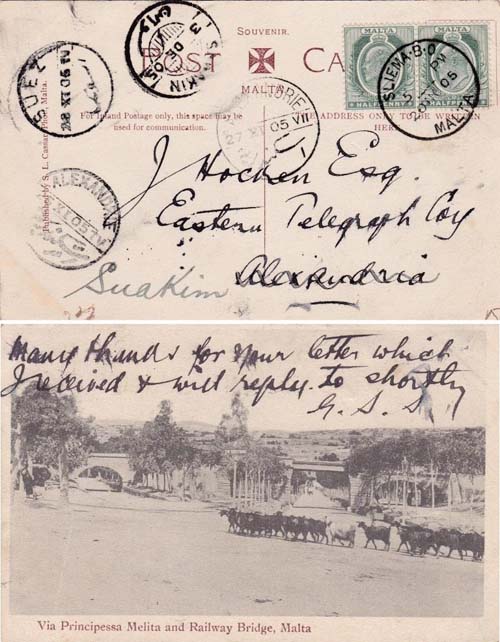 Souvenir.
POST CARD
MALTA
For Inland Postage only, this space may be
used for communication.
THE ADDRESS ONLY TO BE WRITTEN
HERE.
Published by S. L. Cassar, Malta.
MALTA MALTA
HALFPENNY HALFPENNY
SLIEMA·B·O
5 PM
05
MALTA
SUEZ
28 XI 05
SUAKIN
DE
3
27 XI 05 VII
ALEXANDRIE
XI 05
J Hocken Esq.
Eastern Telegraph Coy
Alexandria
Suakim
Many thanks for your letter which
I received & will reply to shortly
G. S. S.
Via Principessa Melita and Railway Bridge, Malta